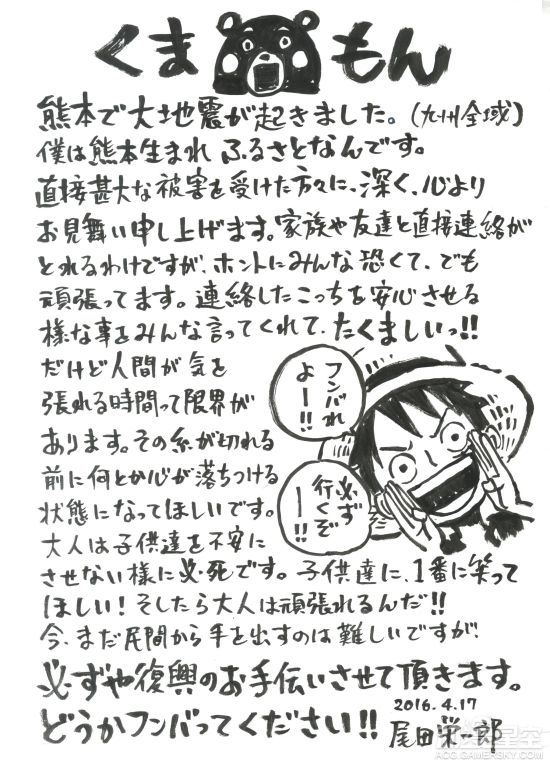 くまもん
熊本で大地震が起きました。(九州全域)
僕は熊本生まれ ふるさとなんです。
直接甚大な被害を受けた方々に、深く、心より
お見舞い申し上げます。家族や友達と直接連絡が
とれるわけですが、ホントにみんな恐くて、でも
頑張ってます。連絡したこっちを安心させる
様な事をみんな言ってくれて、たくましいっ!!
だけど人間が気を
張れる時間って限界が
あります。その糸が切れる
前に何とか心が落ちつける
状態になってほしいです。
大人は子供達を不安に
させない様に必死です。子供達に、1番に笑って
ほしい!そしたら大人は頑張れるんだ!!
今、まだ民間から手を出すのは難しいですが、
必ずや復興のお手伝いさせて頂きます。
どうかフンバってください!!
フンバれ
よー!!
必ず
行くぞ
ー!!
2016.4.17
尾田栄一郎
ACG.GAMERSKY.COM